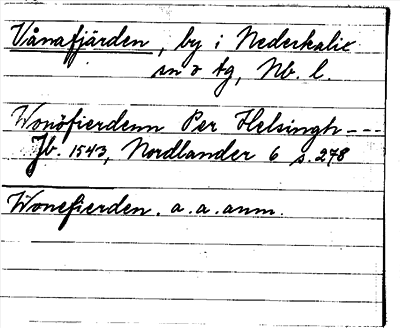 Vånafjärden, by i Nederkalix
sn o tg, Nb. l.
Wonöfierdenn Per Helsingh ---
Jb. 1543, Nordlander 6 s. 278
Wonefierden. a. a. anm.